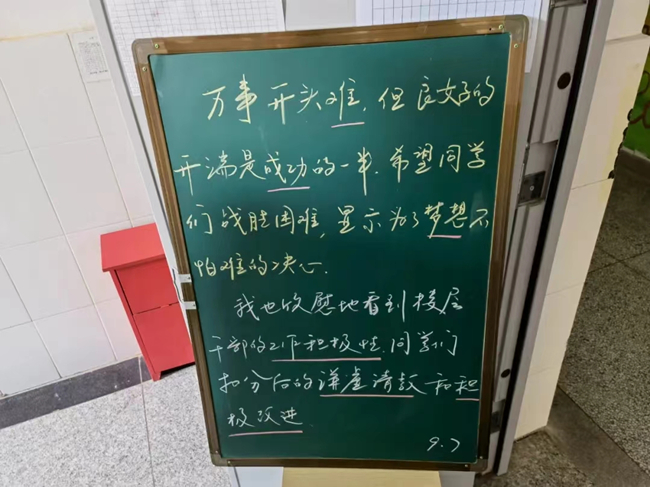 万事开头难，但良好的
开端是成功的一半，希望同学
们战胜困难，显示为了梦想不
怕难的决心.
我也欣慰地看到楼层
干部的工作积极性，同学们
扣分后的谦虚请教和积
极改进.
9.7